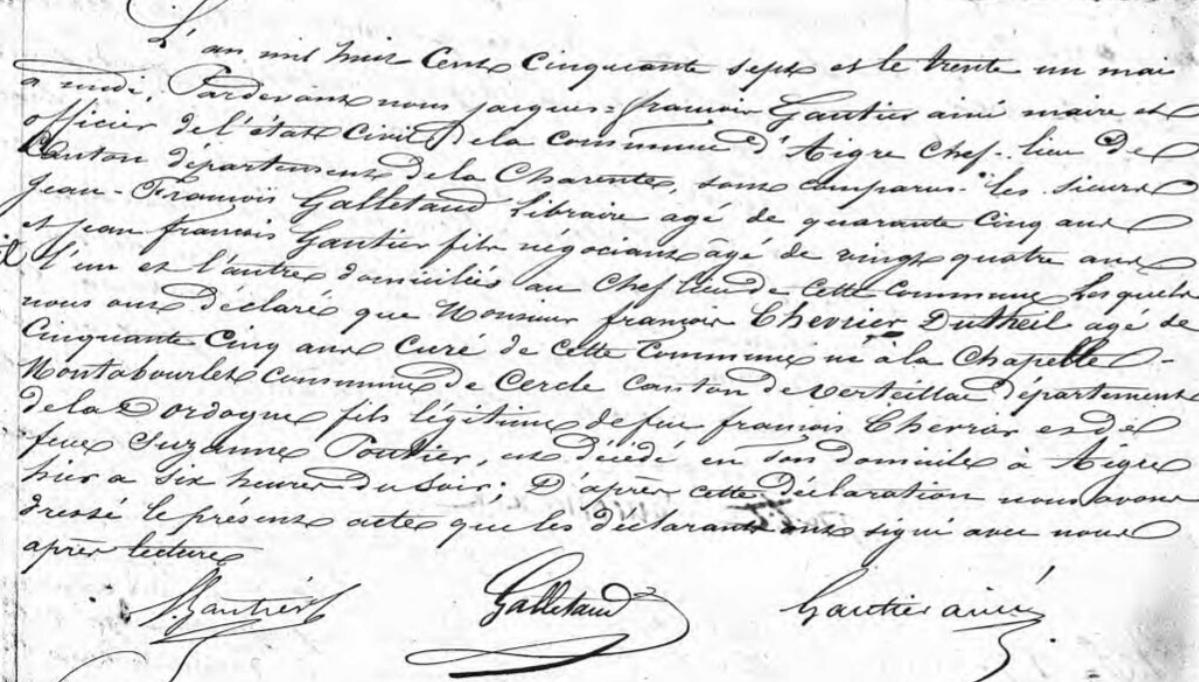 L'an mil huit Cent Cinquante sept et le trente un mai
a midi, Pardevant nous jacques=françois Gautier ainé maire et
officier de l'état Civil de la commune d'Aigre chef-lieu de
Canton département de la Charente, sont comparus les sieurs
Jean-François Galletaud libraire agé de quarante cinq ans
et jean françois Gautier fils négociant âgé de vingt quatre ans
l'un et l'autre domiciliés au Chef lieu de cette Commune Lesquels
nous ont déclaré que Monsieur françois Chevrier Dutheil agé de
Cinquante Cinq ans Curé de cette Commune né à la Chapelle-
Montabourlet commune de Cercle canton de verteillac département
de la Dordogne fils légitime de feu françois Cherrier et de
feue Suzanne Poutier, est décédé en son domicile à Aigre
hier a six heures du Soir; D'après cette déclaration nous avons
dressé le présent acte que les déclarants ont signé avec nous
après lecture
Gautier f Galletaud Gautier ainé